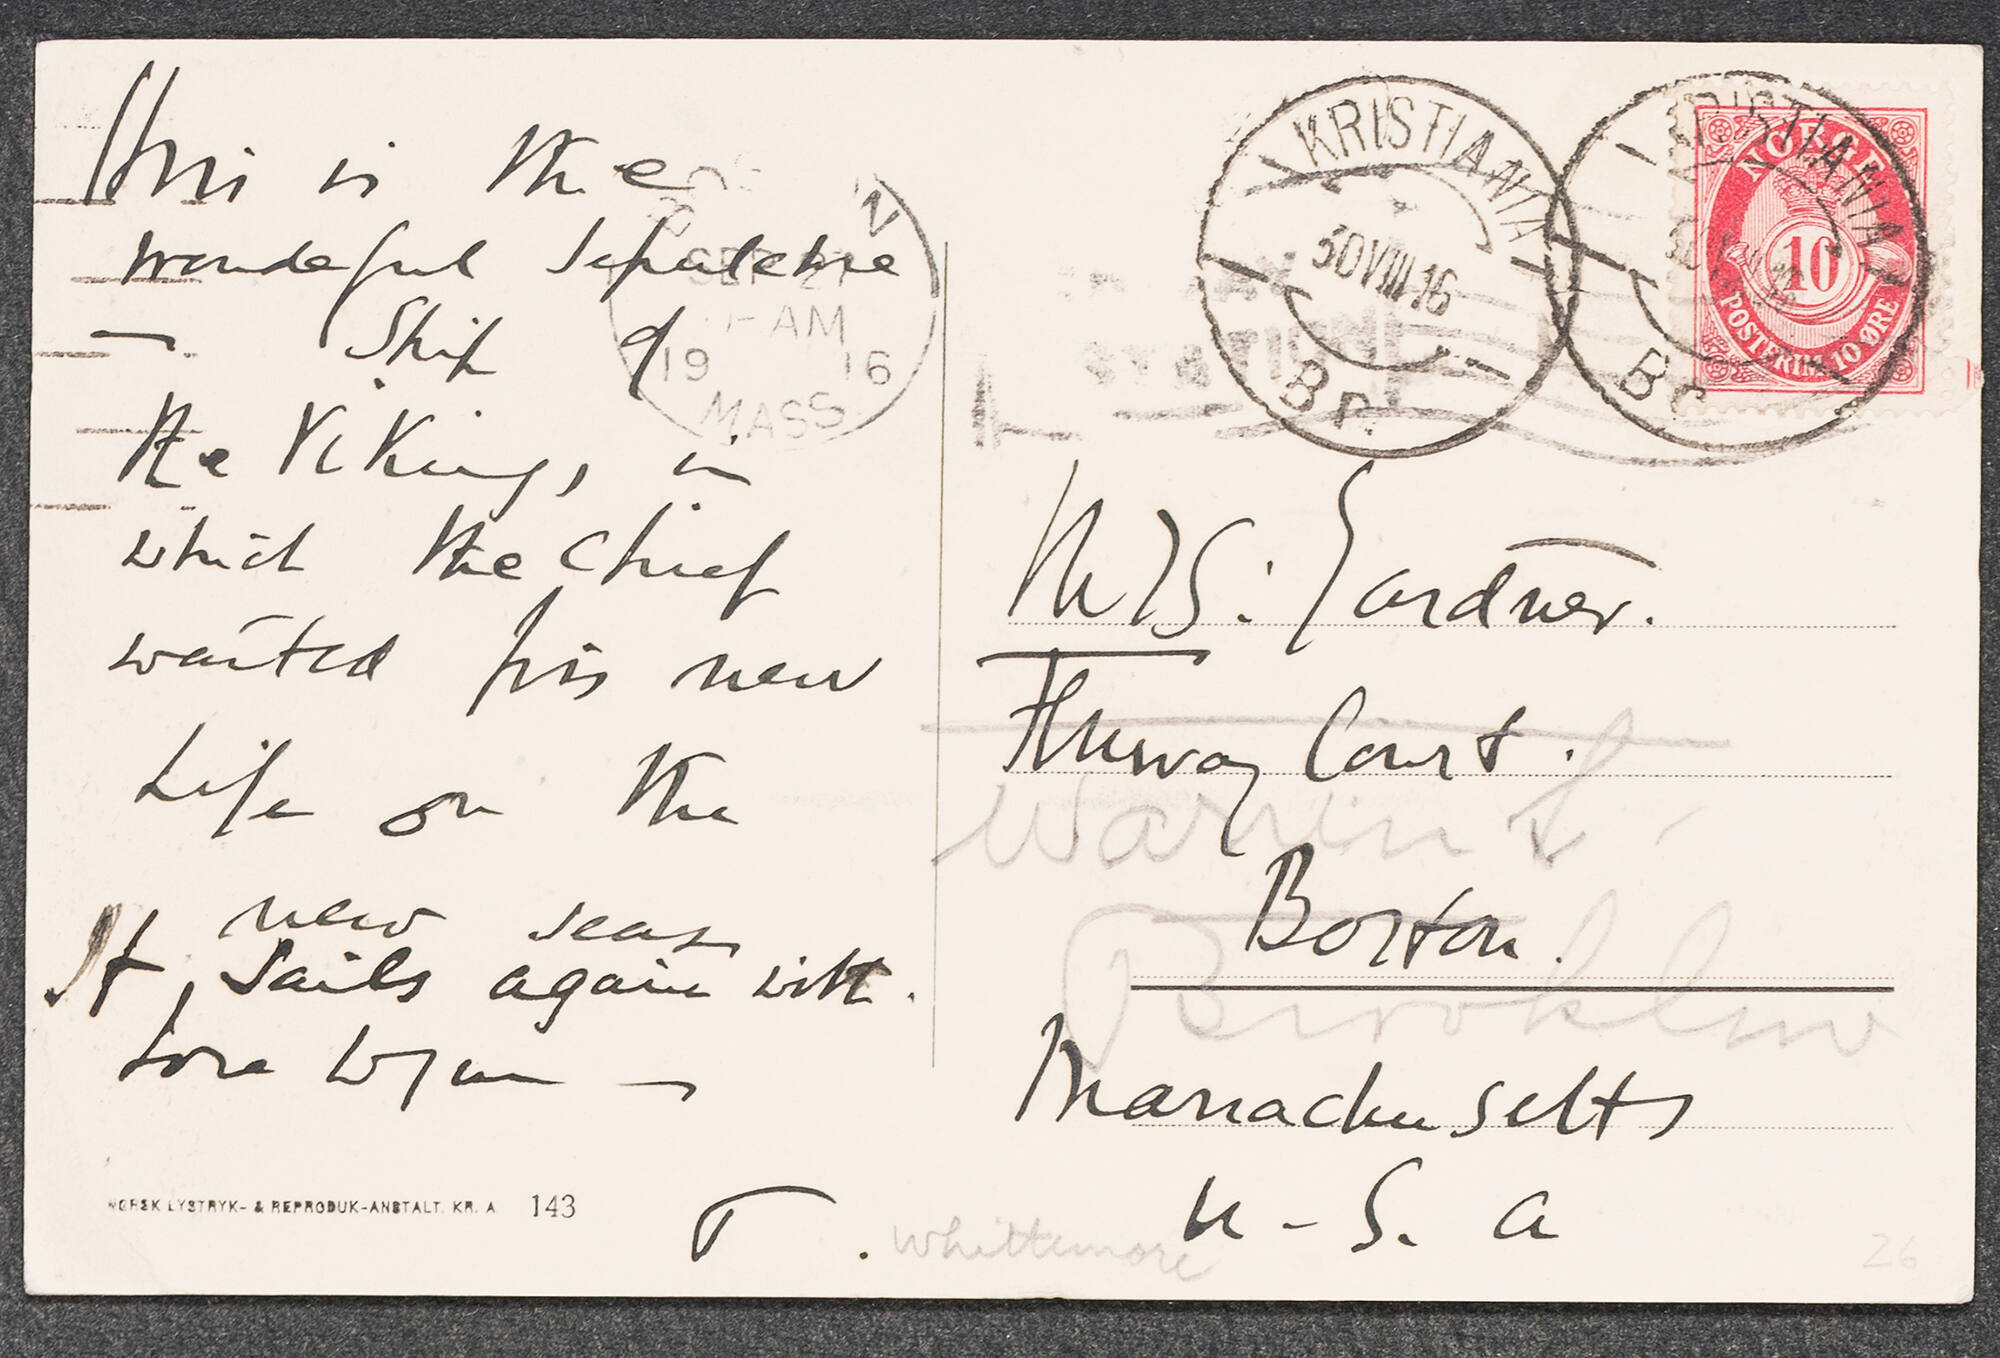 This is the
wonderful Sepulchre
— Ship of
the Vikings, in
which the Chief
waited his new
Life on the
new seas
It, sails again with
tore —
T.
NORSK LYSTRYK- & REPRODUK-ANSTALT. KR. A 143
SEP 21
AM
19 16
MASS.
KRISTIANIA
30 VIII 16
Br.
KRISTIANIA
Br
NORGE
10
POSTFRIM. 10 ØRE
STATION
Mrs: Gardner.
Fenway Court.
Warren St
Boston.
Brookline
Massachusetts
U-S. A
Whittemore
26